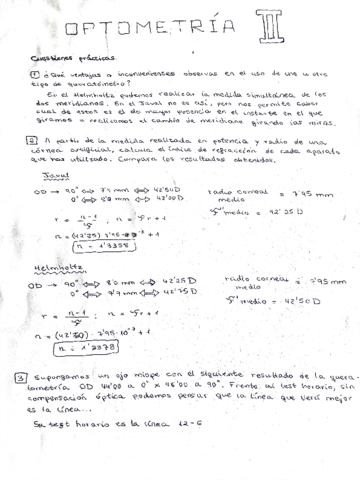 OPTOMETRÍA II
Cuestiones prácticas
1 ¿Qué ventajas o inconvenientes observas en el uso de uno u otro
tipo de queratómetro?
En el Helmholtz podemos realizar la medida simultánea de los
dos meridianos. En el Javal no es así, pero nos permite saber
cual de estos es el de mayor potencia en el instante en el que
giramos o realicemos el cambio de meridiano girando las miras.
2 A partir de la medida realizada en potencia y radio de una
córnea artificial, calcula el índice de refracción de cada aparato
que has utilizado. Compara los resultados obtenidos.
Javal
OD → 90° ⇔ 7'9 mm ⇔ 42'50D radio corneal medio = 7'95 mm
0° ⇔ 8'0 mm ⇔ 42'00 D medio = 42'25 D
r = n-1 ; n = r + 1
n = (42'25) · 7'95 · 10⁻³ + 1
n = 1'3358
Helmholtz
OD → 90° ⇔ 8'0 mm ⇔ 42'25D radio corneal medio = 7'95 mm
0° ⇔ 7'9 mm ⇔ 42'75D medio = 42'50D
r = n-1 ; n = r + 1
n = (42'50) · 7'95 · 10⁻³ + 1
n = 1'3378
3 Supongamos un ojo miope con el siguiente resultado de la quera-
tometría OD 44'00 a 0° x 46'00 a 90°. Frente al test horario, sin
compensación óptica podemos pensar que la línea que verá mejor
es la línea...
Su test horario es la línea 12-6